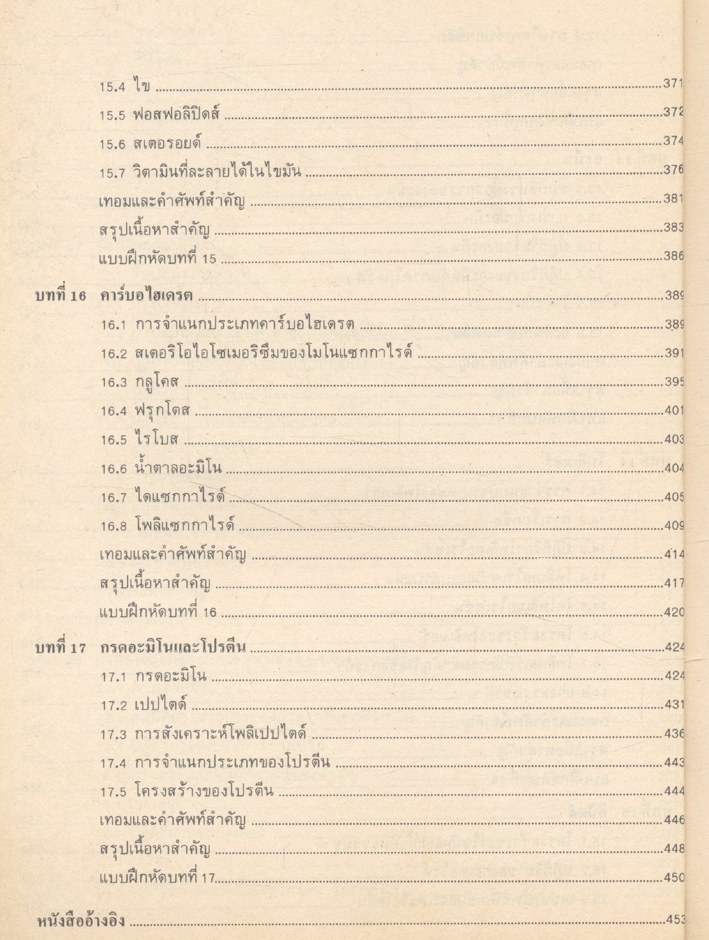 15.4 ไข ........ 371
15.5 ฟอสฟอลิปิดส์ ........ 372
15.6 สเตอรอยด์ ........ 374
15.7 วิตามินที่ละลายได้ในไขมัน ........ 376
เทอมและคำศัพท์สำคัญ ........ 381
สรุปเนื้อหาสำคัญ ........ 383
แบบฝึกหัดบทที่ 15 ........ 386
บทที่ 16 คาร์บอไฮเดรต ........ 389
16.1 การจำแนกประเภทคาร์บอไฮเดรต ........ 389
16.2 สเตอริโอไอโซเมอริซึมของโมโนแซกกาไรด์ ........ 391
16.3 กลูโคส ........ 395
16.4 ฟรุกโตส ........ 401
16.5 ไรโบส ........ 403
16.6 น้ำตาลอะมิโน ........ 404
16.7 ไดแซกกาไรด์ ........ 405
16.8 โพลิแซกกาไรด์ ........ 409
เทอมและคำศัพท์สำคัญ ........ 414
สรุปเนื้อหาสำคัญ ........ 417
แบบฝึกหัดบทที่ 16 ........ 420
บทที่ 17 กรดอะมิโนและโปรตีน ........ 424
17.1 กรดอะมิโน ........ 424
17.2 เปปไตด์ ........ 431
17.3 การสังเคราะห์โพลิเปปไตด์ ........ 436
17.4 การจำแนกประเภทของโปรตีน ........ 443
17.5 โครงสร้างของโปรตีน ........ 444
เทอมและคำศัพท์สำคัญ ........ 446
สรุปเนื้อหาสำคัญ ........ 448
แบบฝึกหัดบทที่ 17 ........ 450
หนังสืออ้างอิง ........ 453